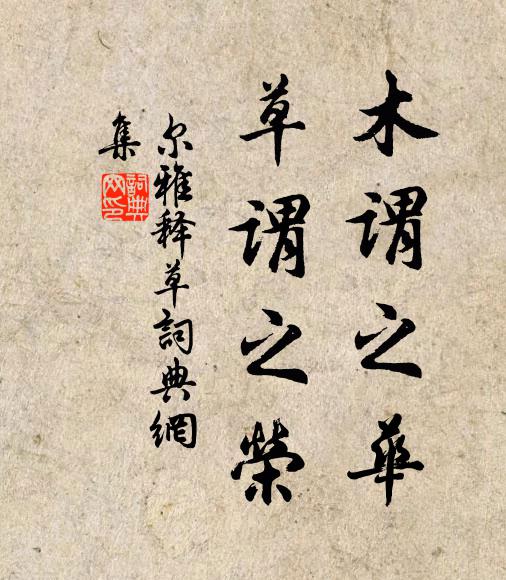 木谓之華
草谓之榮
尔雅释草詞典網
集
詞典網印